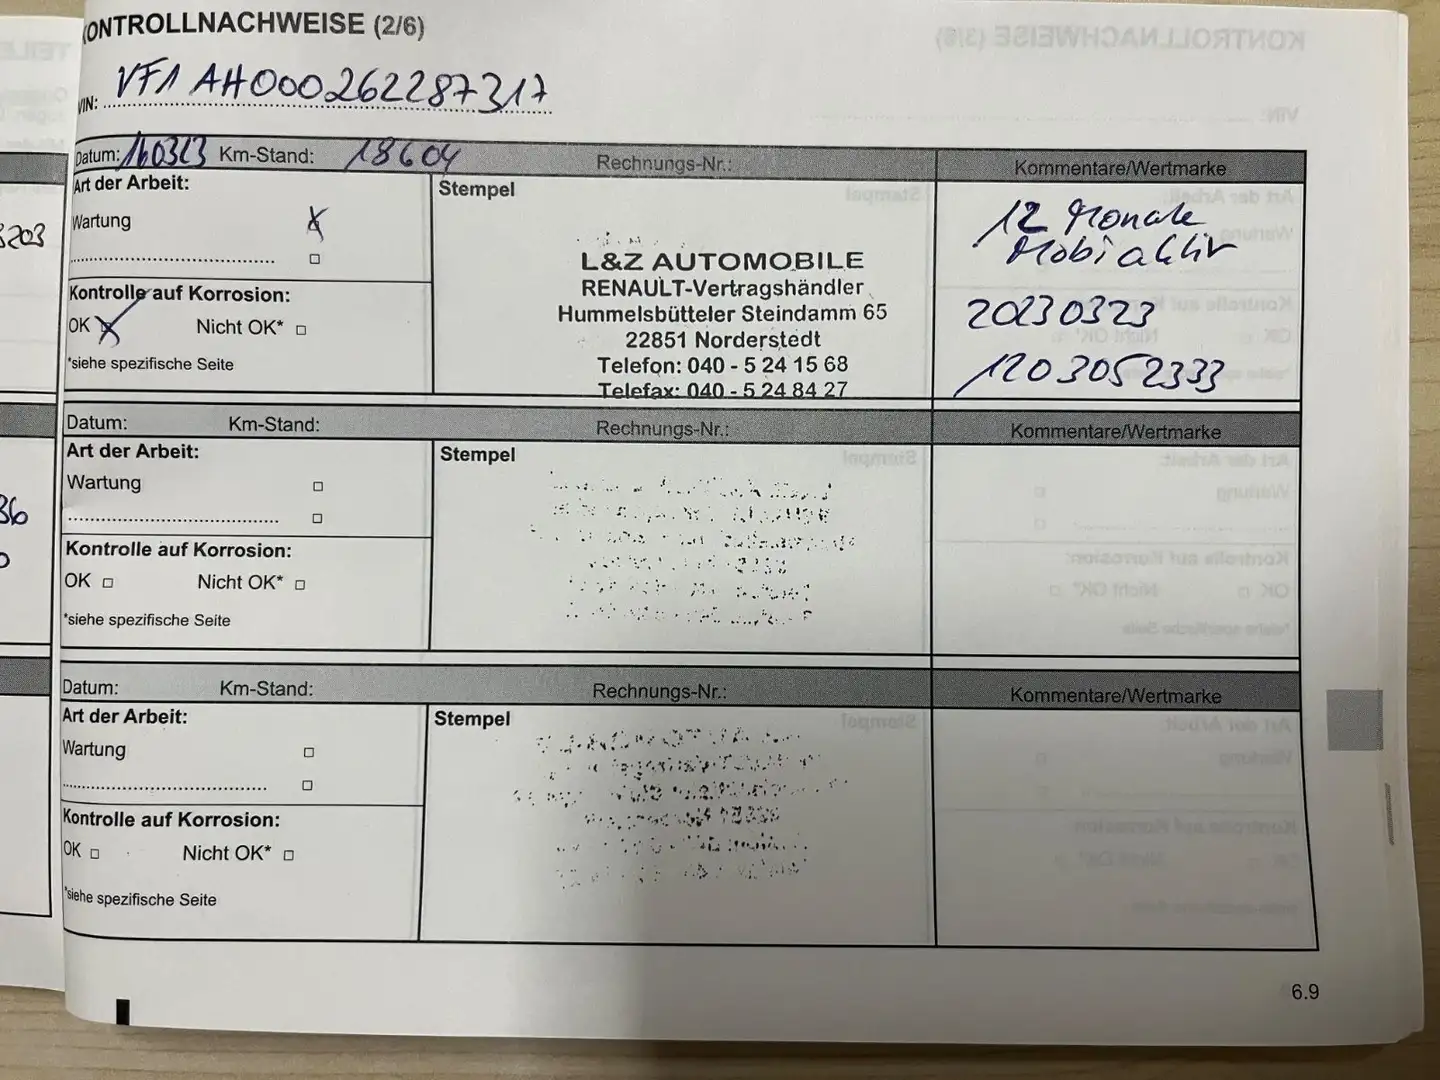 KONTROLLNACHWEISE (2/6)
VIN: VF1AH000262287317
Datum: 160323 Km-Stand: 18604 Rechnungs-Nr.: Kommentare/Wertmarke
Art der Arbeit:
Wartung X
Kontrolle auf Korrosion:
OK X Nicht OK*
*siehe spezifische Seite
Stempel
L&Z AUTOMOBILE
RENAULT-Vertragshändler
Hummelsbütteler Steindamm 65
22851 Norderstedt
Telefon: 040 - 5 24 15 68
Telefax: 040 - 5 24 84 27
12 Monate
Mobi aktiv
20230323
1203052333
Datum: Km-Stand: Rechnungs-Nr.: Kommentare/Wertmarke
Art der Arbeit:
Wartung
Kontrolle auf Korrosion:
OK Nicht OK*
*siehe spezifische Seite
Stempel
Datum: Km-Stand: Rechnungs-Nr.: Kommentare/Wertmarke
Art der Arbeit:
Wartung
Kontrolle auf Korrosion:
OK Nicht OK*
*siehe spezifische Seite
Stempel
6.9